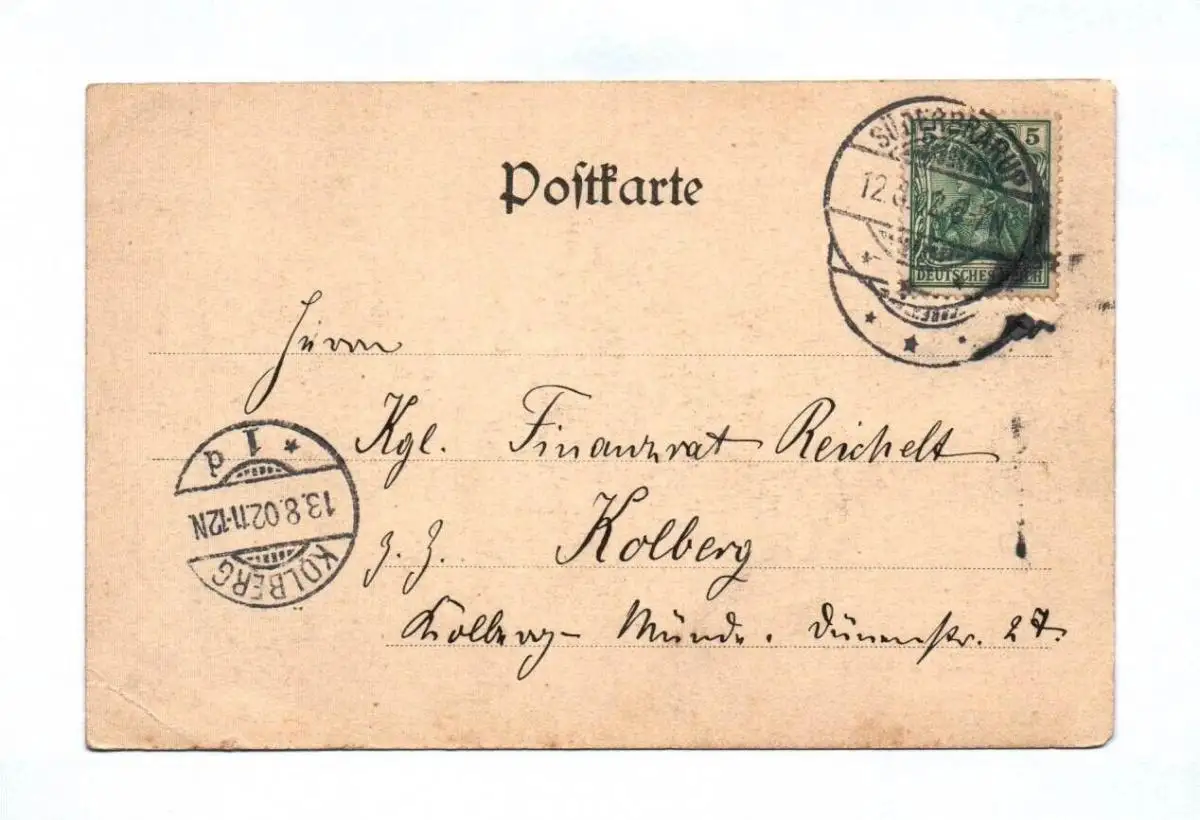 Postkarte
SÜDERBRARUP
12.8.
5
DEUTSCHES REICH
Herrn
Kgl. Finanzrat Reichelt
z. Z. Kolberg
Kolberg-Münde. Dünenstr. 27.
* 1 d
13.8.02.11-12N
KOLBERG